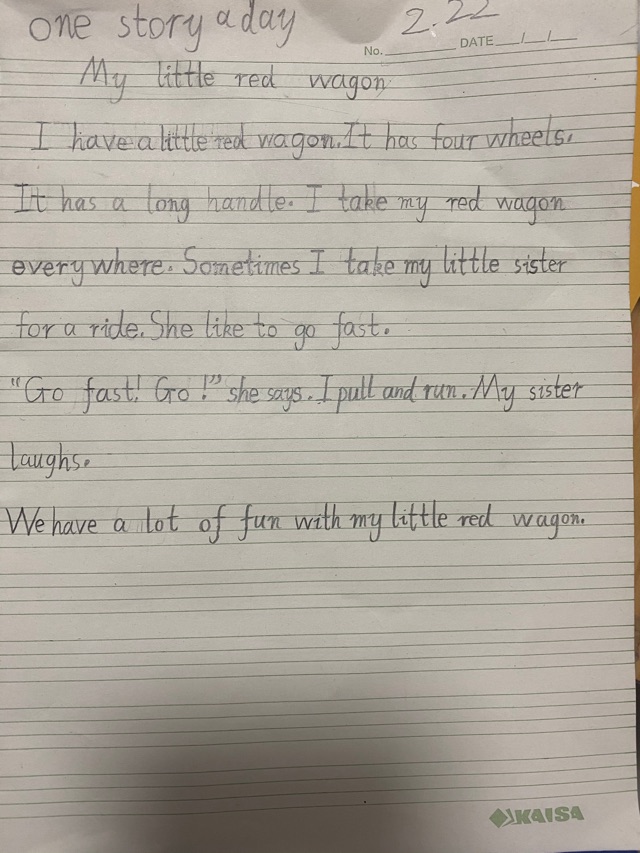 one story a day 2.22
No. DATE / /
My little red wagon
I have a little red wagon. It has four wheels.
It has a long handle. I take my red wagon
everywhere. Sometimes I take my little sister
for a ride. She like to go fast.
"Go fast! Go!" she says. I pull and run. My sister
laughs.
We have a lot of fun with my little red wagon.
KAISA